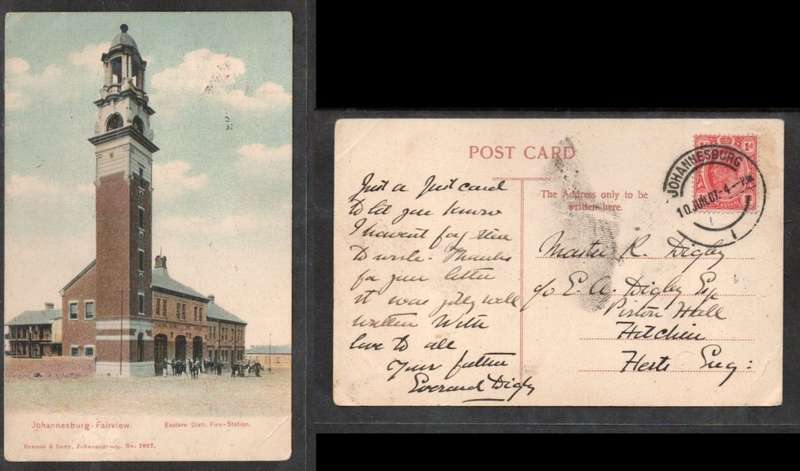 Johannesburg-Fairview. Eastern Distr. Fire-Station.
& Johannesburg. No.
POST CARD
The Address only to be
written here.
JOHANNESBURG
10 JUN 07·4—PM
1d
Just a Just card
to let you know
I havent forgotten
to write. Thanks
for your letter
it was jolly well
written With
love to all
Your father
Everard Digby
Master R. Digby
c/o E. A. Digby Esq
Pirton Hall
Hitchin
Herts Eng: